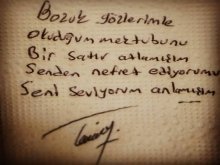 Bozuk gözlerimle
okuduğum mektubunu
Bir satır atlamışım
Senden nefret ediyorumu
Seni Seviyorum anlamışım